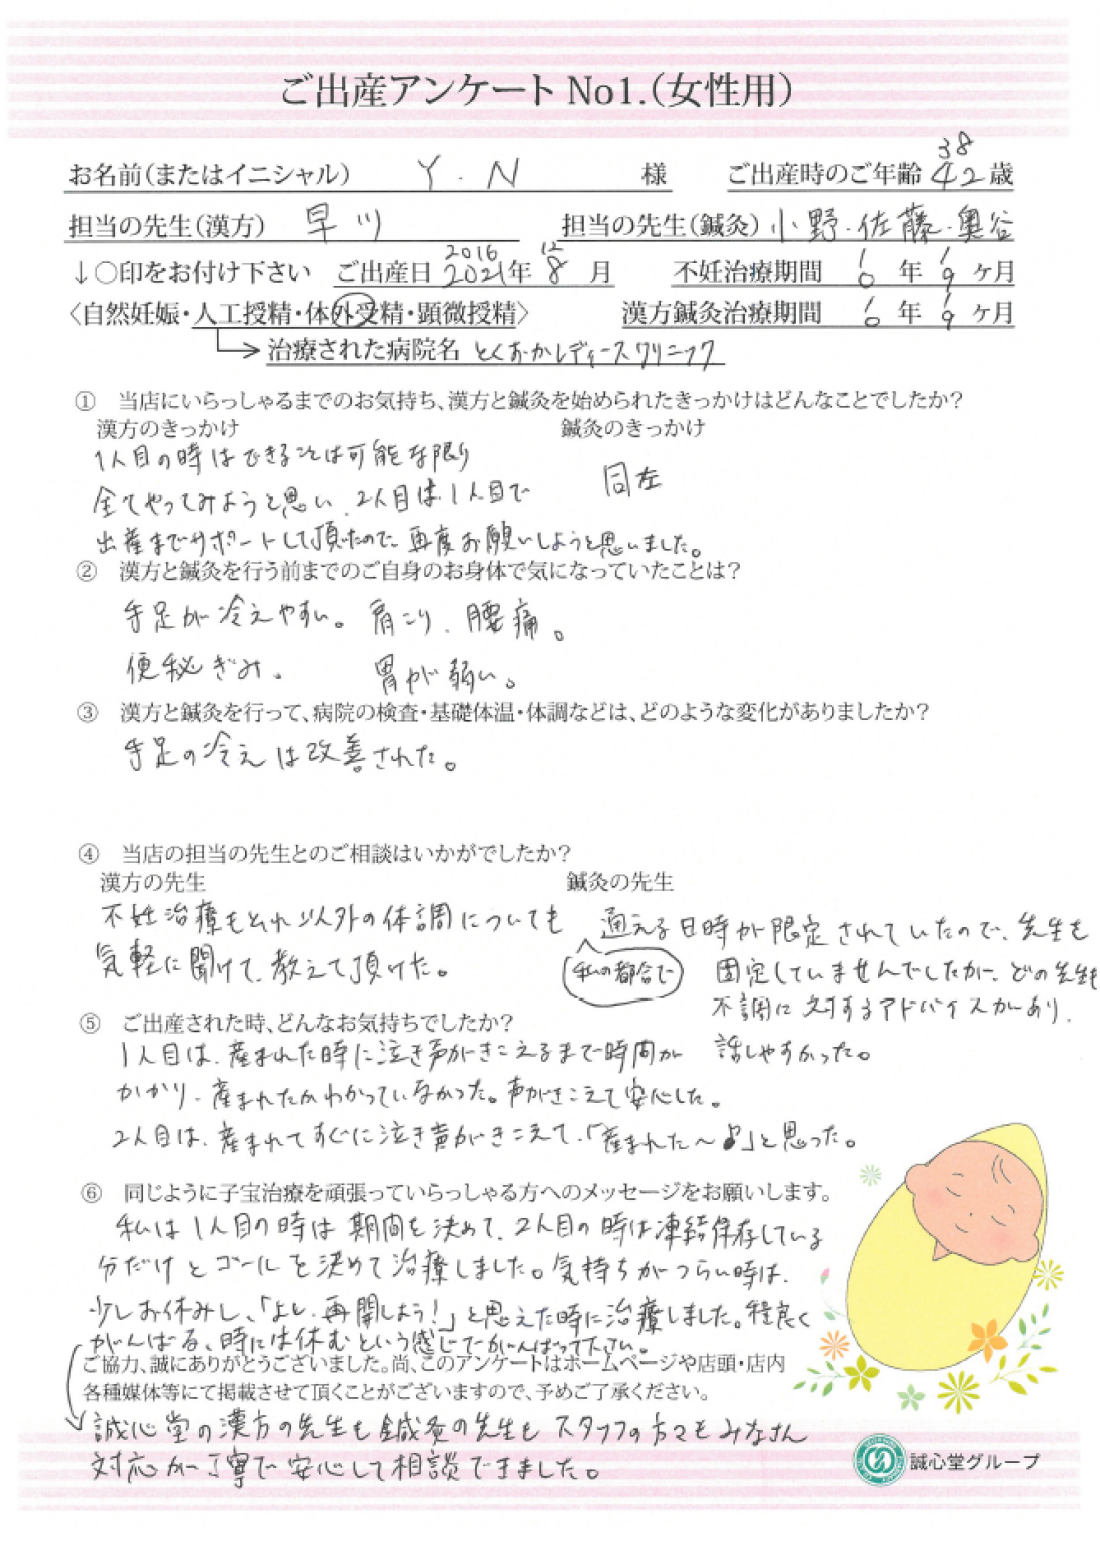 ご出産アンケート No1.(女性用)
お名前(またはイニシャル) Y.N 様 ご出産時のご年齢 38 42歳
担当の先生(漢方) 早川 担当の先生(鍼灸) 小野・佐藤・奥谷
↓○印をお付け下さい ご出産日 2016 2021年 12 8月 不妊治療期間 1 0年 1 9ヶ月
〈自然妊娠・人工授精・体外受精・顕微授精〉 漢方鍼灸治療期間 1 0年 1 9ヶ月
治療された病院名 とくおかレディースクリニック
① 当店にいらっしゃるまでのお気持ち、漢方と鍼灸を始められたきっかけはどんなことでしたか?
漢方のきっかけ 鍼灸のきっかけ
1人目の時はできることは可能な限り
全てやってみようと思い、2人目は、1人目で
出産までサポートして頂たので、再度お願いしようと思いました。
同左
② 漢方と鍼灸を行う前までのご自身のお身体で気になっていたことは?
手足が冷えやすい。肩こり、腰痛。
便秘ぎみ。 胃が弱い。
③ 漢方と鍼灸を行って、病院の検査・基礎体温・体調などは、どのような変化がありましたか?
手足の冷えは改善された。
④ 当店の担当の先生とのご相談はいかがでしたか?
漢方の先生 鍼灸の先生
不妊治療もそれ以外の体調についても
気軽に聞けて、教えて頂けた。
通える日時が限定されていたので、先生も
私の都合で
固定していませんでしたが、どの先生も
不調に対するアドバイスがあり、
話しやすかった。
⑤ ご出産された時、どんなお気持ちでしたか?
1人目は、産まれた時に泣き声がきこえるまで時間が
かかり、産まれたかわかっていなかった。声がきこえて安心した。
2人目は、産まれてすぐに泣き声がきこえて、「産まれた〜♪」と思った。
⑥ 同じように子宝治療を頑張っていらっしゃる方へのメッセージをお願いします。
私は1人目の時は期間を決めて、2人目の時は凍結保存している
分だけとゴールを決めて治療しました。気持ちがつらい時は、
少しお休みし、「よし、再開しよう!」と思えた時に治療しました。程良く
がんばる、時には休むという感じでがんばって下さい。
ご協力、誠にありがとうございました。尚、このアンケートはホームページや店頭・店内
各種媒体等にて掲載させて頂くことがございますので、予めご了承ください。
誠心堂の漢方の先生も鍼灸の先生もスタッフの方々もみなさん
対応が丁寧で安心して相談できました。
誠心堂グループ